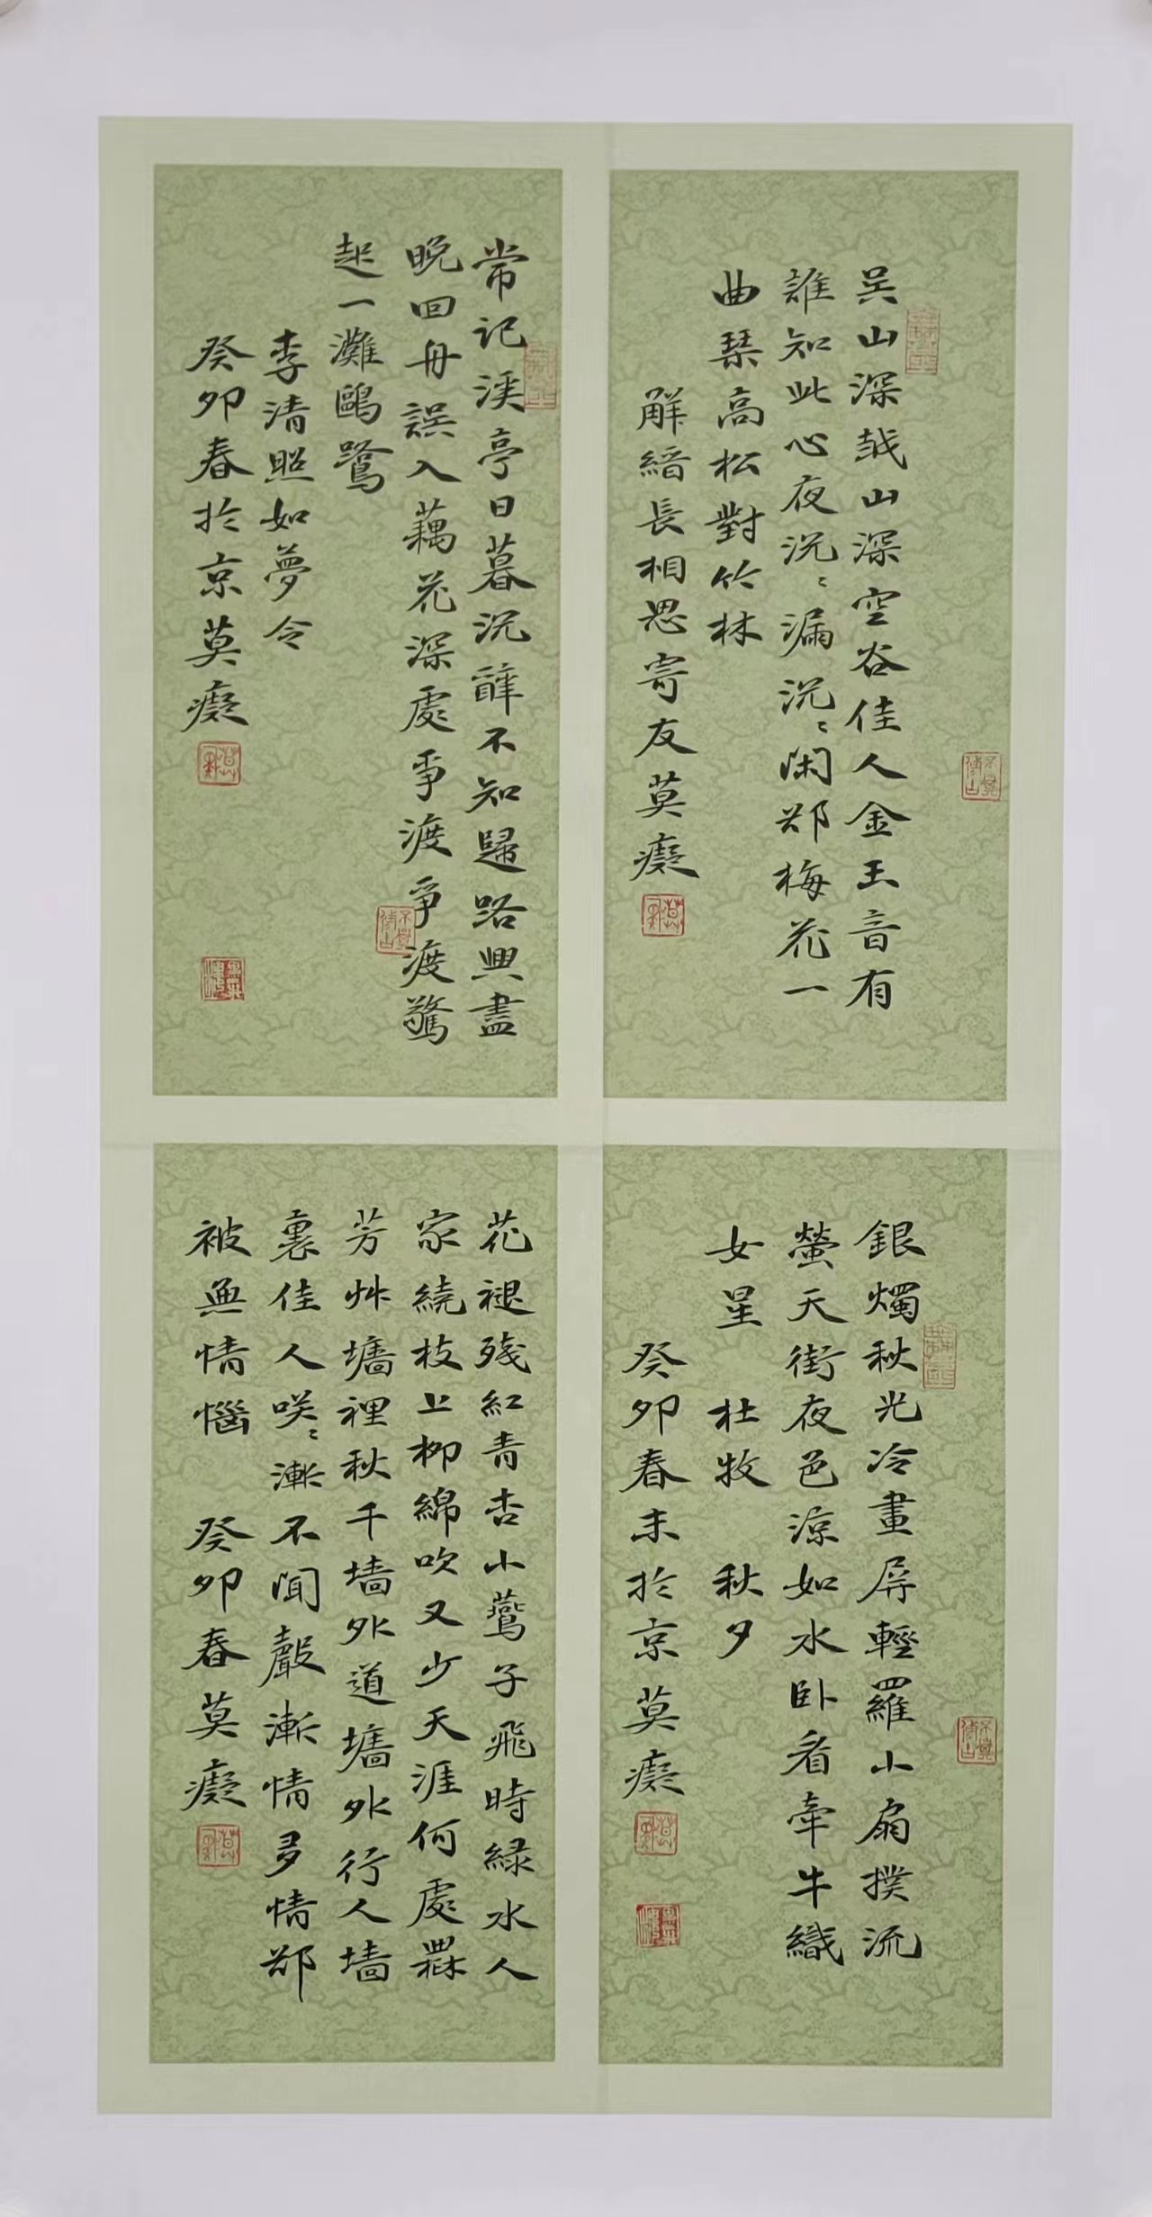 吴山深越山深空谷佳人金玉音有
誰知此心夜沉〻漏沉〻閑卻梅花一
曲琴高松對竹林
解縉長相思寄友莫癡
常記溪亭日暮沉醉不知歸路興盡
晚回舟誤入藕花深處爭渡爭渡驚
起一灘鷗鷺
李清照如夢令
癸卯春於京莫癡
銀燭秋光冷畫屏輕羅小扇撲流
螢天街夜色涼如水卧看牽牛織
女星 杜牧 秋夕
癸卯春末於京莫癡
花褪殘紅青杏小燕子飛時緑水人
家繞枝上柳綿吹又少天涯何處無
芳艸墻裡秋千墻外道墻外行人墻
裏佳人咲〻漸不聞聲漸情多情卻
被無情惱 癸卯春莫癡